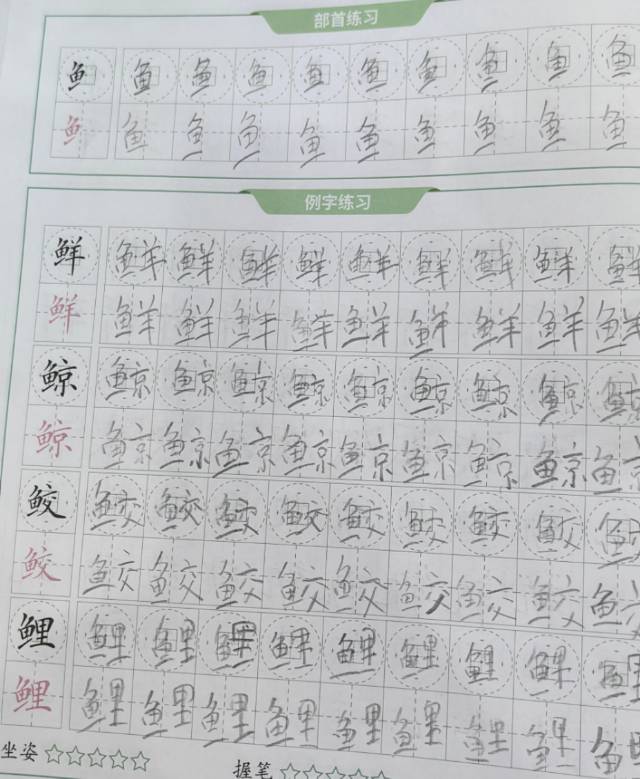 部首练习
鱼 鱼 鱼 鱼 鱼 鱼 鱼 鱼 鱼 鱼
鱼 鱼 鱼 鱼 鱼 鱼 鱼 鱼 鱼 鱼
例字练习
鲜 鲜 鲜 鲜 鲜 鲜 鲜 鲜 鲜 鲜
鲜 鲜 鲜 鲜 鲜 鲜 鲜 鲜 鲜 鲜
鲸 鲸 鲸 鲸 鲸 鲸 鲸 鲸 鲸 鲸
鲸 鲸 鲸 鲸 鲸 鲸 鲸 鲸 鲸 鲸
鲛 鲛 鲛 鲛 鲛 鲛 鲛 鲛 鲛 鲛
鲛 鲛 鲛 鲛 鲛 鲛 鲛 鲛 鲛 鲛
鲤 鲤 鲤 鲤 鲤 鲤 鲤 鲤 鲤 鲤
鲤 鲤 鲤 鲤 鲤 鲤 鲤 鲤 鲤 鲤
坐姿 ☆☆☆☆☆ 握笔 ☆☆☆☆☆